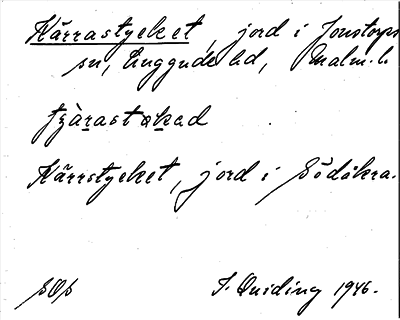 Kärrastycket, jord i Jonstorps
sn, Luggude hd, Malm. l.
Kärrstycket, jord i Södåkra.
SOS
I. Quiding 1946.